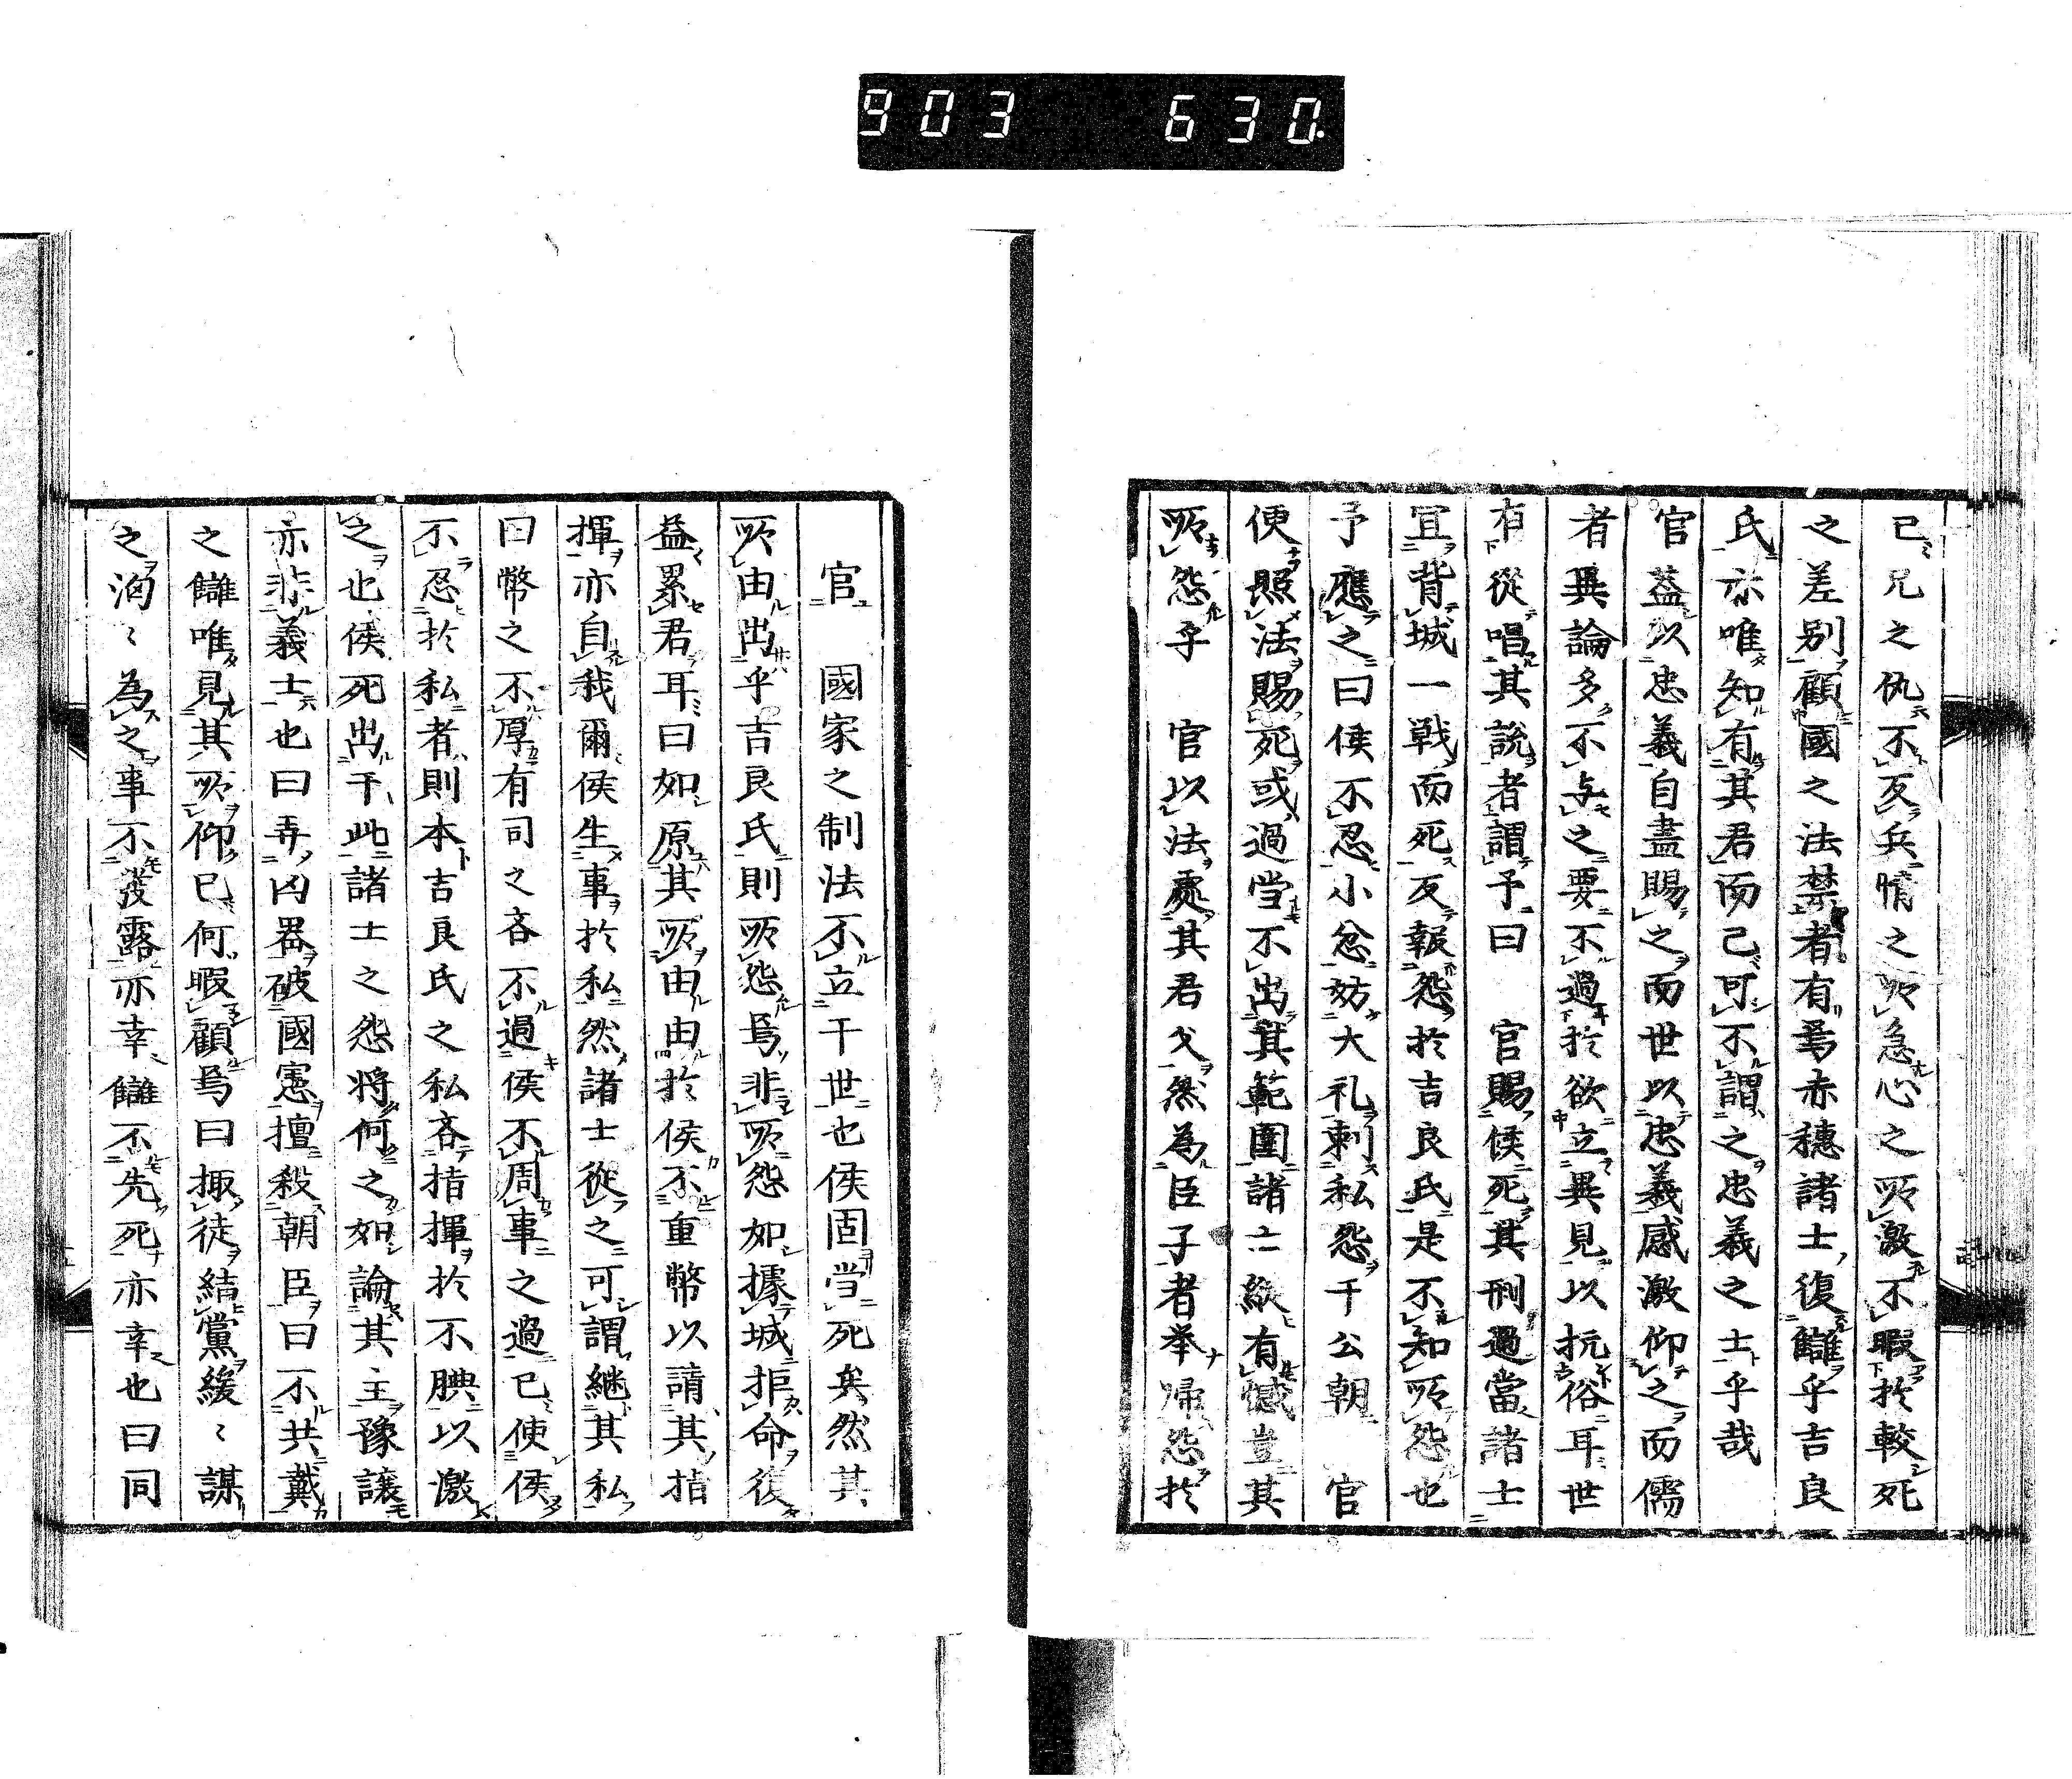 903 630.
已兄之仇不反兵情之所急心之所激不暇於較死
之差別顧國之法禁者有焉赤穗諸士復讎乎吉良
氏亦唯知有其君而已可不謂之忠義之士乎哉
官葢以忠義自盡賜之而世以忠義感激仰之而儒
者異論多不与之要不過於欲立異見以抗俗耳世
有從唱其說者謂予曰　官賜侯死其刑過當諸士
宜背城一戦而死反報怨於吉良氏是不知所怨也
予應之曰侯不忍小忿妨大礼剌私怨干公朝　官
便照法賜死或過當不出其範圍諸士縱有憾豈其
所怨乎　官以法處其君父然為臣子者举帰怨於
官　國家之制法不立干世也侯固當死矣然其
所由出乎吉良氏則所怨焉非所怨如據城拒命復
益累君耳曰如原其所由由於侯不重幣以請其指
揮亦自我爾侯生事於私然諸士從之可謂継其私
曰幣之不厚有司之吝不過侯不周事之過已使侯
不忍於私者則本吉良氏之私吝指揮於不腆以激
之也侯死出干此諸士之怨将何之如論其主豫讓
亦非義士也曰弄凶器破國憲擅殺朝臣曰不共戴
之讎唯見其所仰已何暇顧焉曰掫徒結黨緩〻謀
之洶〻為之事不發露亦幸讎不先死亦幸也曰同